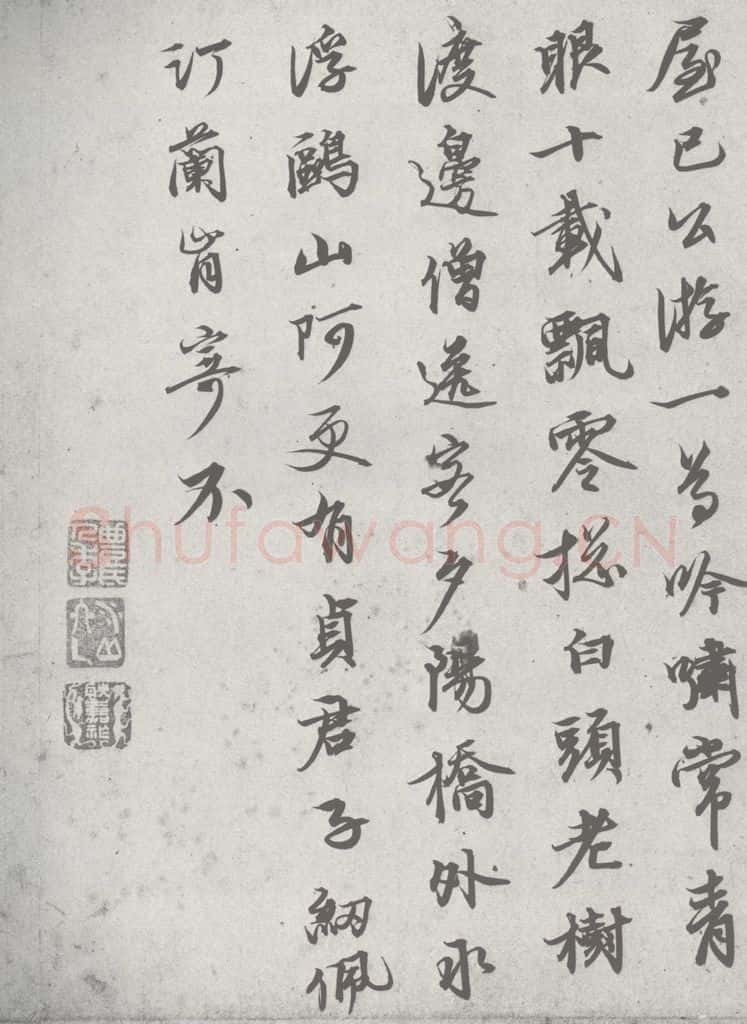 屋已公游一為吟嘯常青
眼十載飄零摠白頭老樹
渡邊僧送客夕陽橋外水
浮鷗山阿更有貞君子紉佩
汀蘭肯寄不
Shufawang.CN